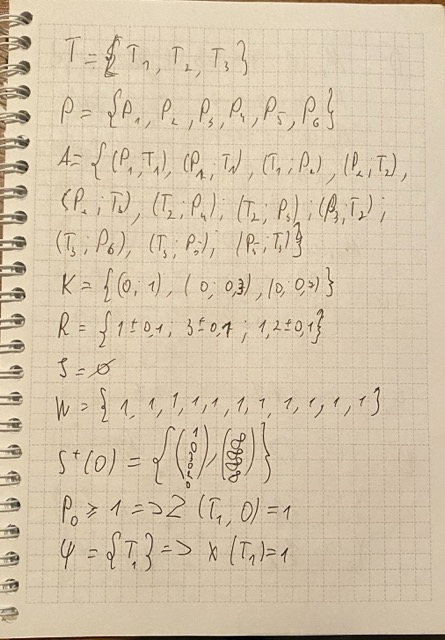 T = { T₁, T₂, T₃ }
P = { P₁, P₂, P₃, P₄, P₅, P₆ }
A = { (P₁, T₁), (P₂, T₁), (T₁; P₂), (P₂; T₂),
(P₂; T₃), (T₂; P₄); (T₂; P₃); (P₃; T₂);
(T₃; P₆), (T₃; P₅); (P₅; T₃) }
K = { (0; 1), (0; 0,3), (0; 0,7) }
R = { 1±0,1; 3±0,7; 1,2±0,1 }
S = ∅
W = { 1, 1, 1, 1, 1, 1, 1, 1, 1, 1, 1 }
S⁺(0) = { ( 1 0 ), ( ) }
P₀ ≥ 1 => Z (T₁, 0) = 1
Ψ = { T₁ } => X (T₁) = 1